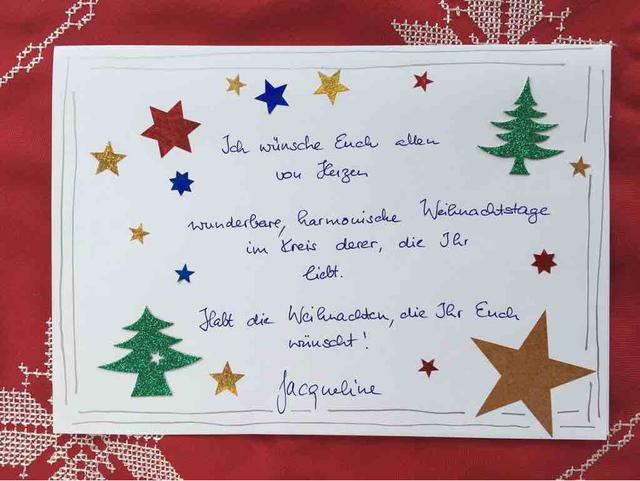 Ich wünsche Euch allen
von Herzen
wunderbare, harmonische Weihnachtstage
im Kreis derer, die Ihr
liebt.
Habt die Weihnachten, die Ihr Euch
wünscht!
Jacqueline